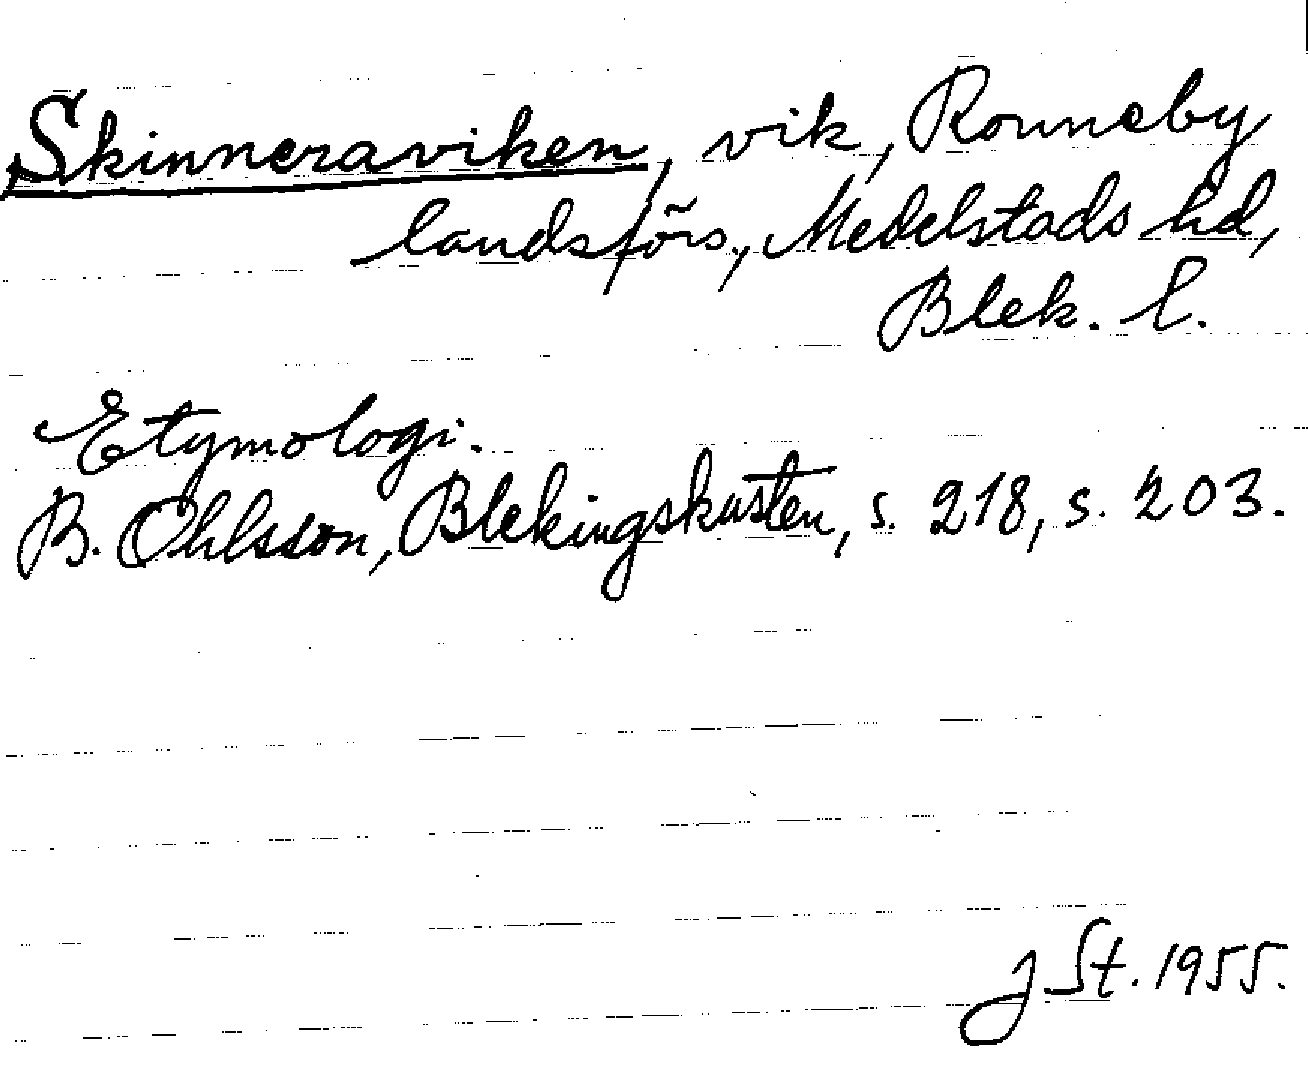 Skinneraviken, vik, Ronneby
landsförs., Medelstads hd,
Blek. l.
Etymologi.
B. Ohlsson, Blekingskusten, s. 218, s. 203.
J St. 1955.